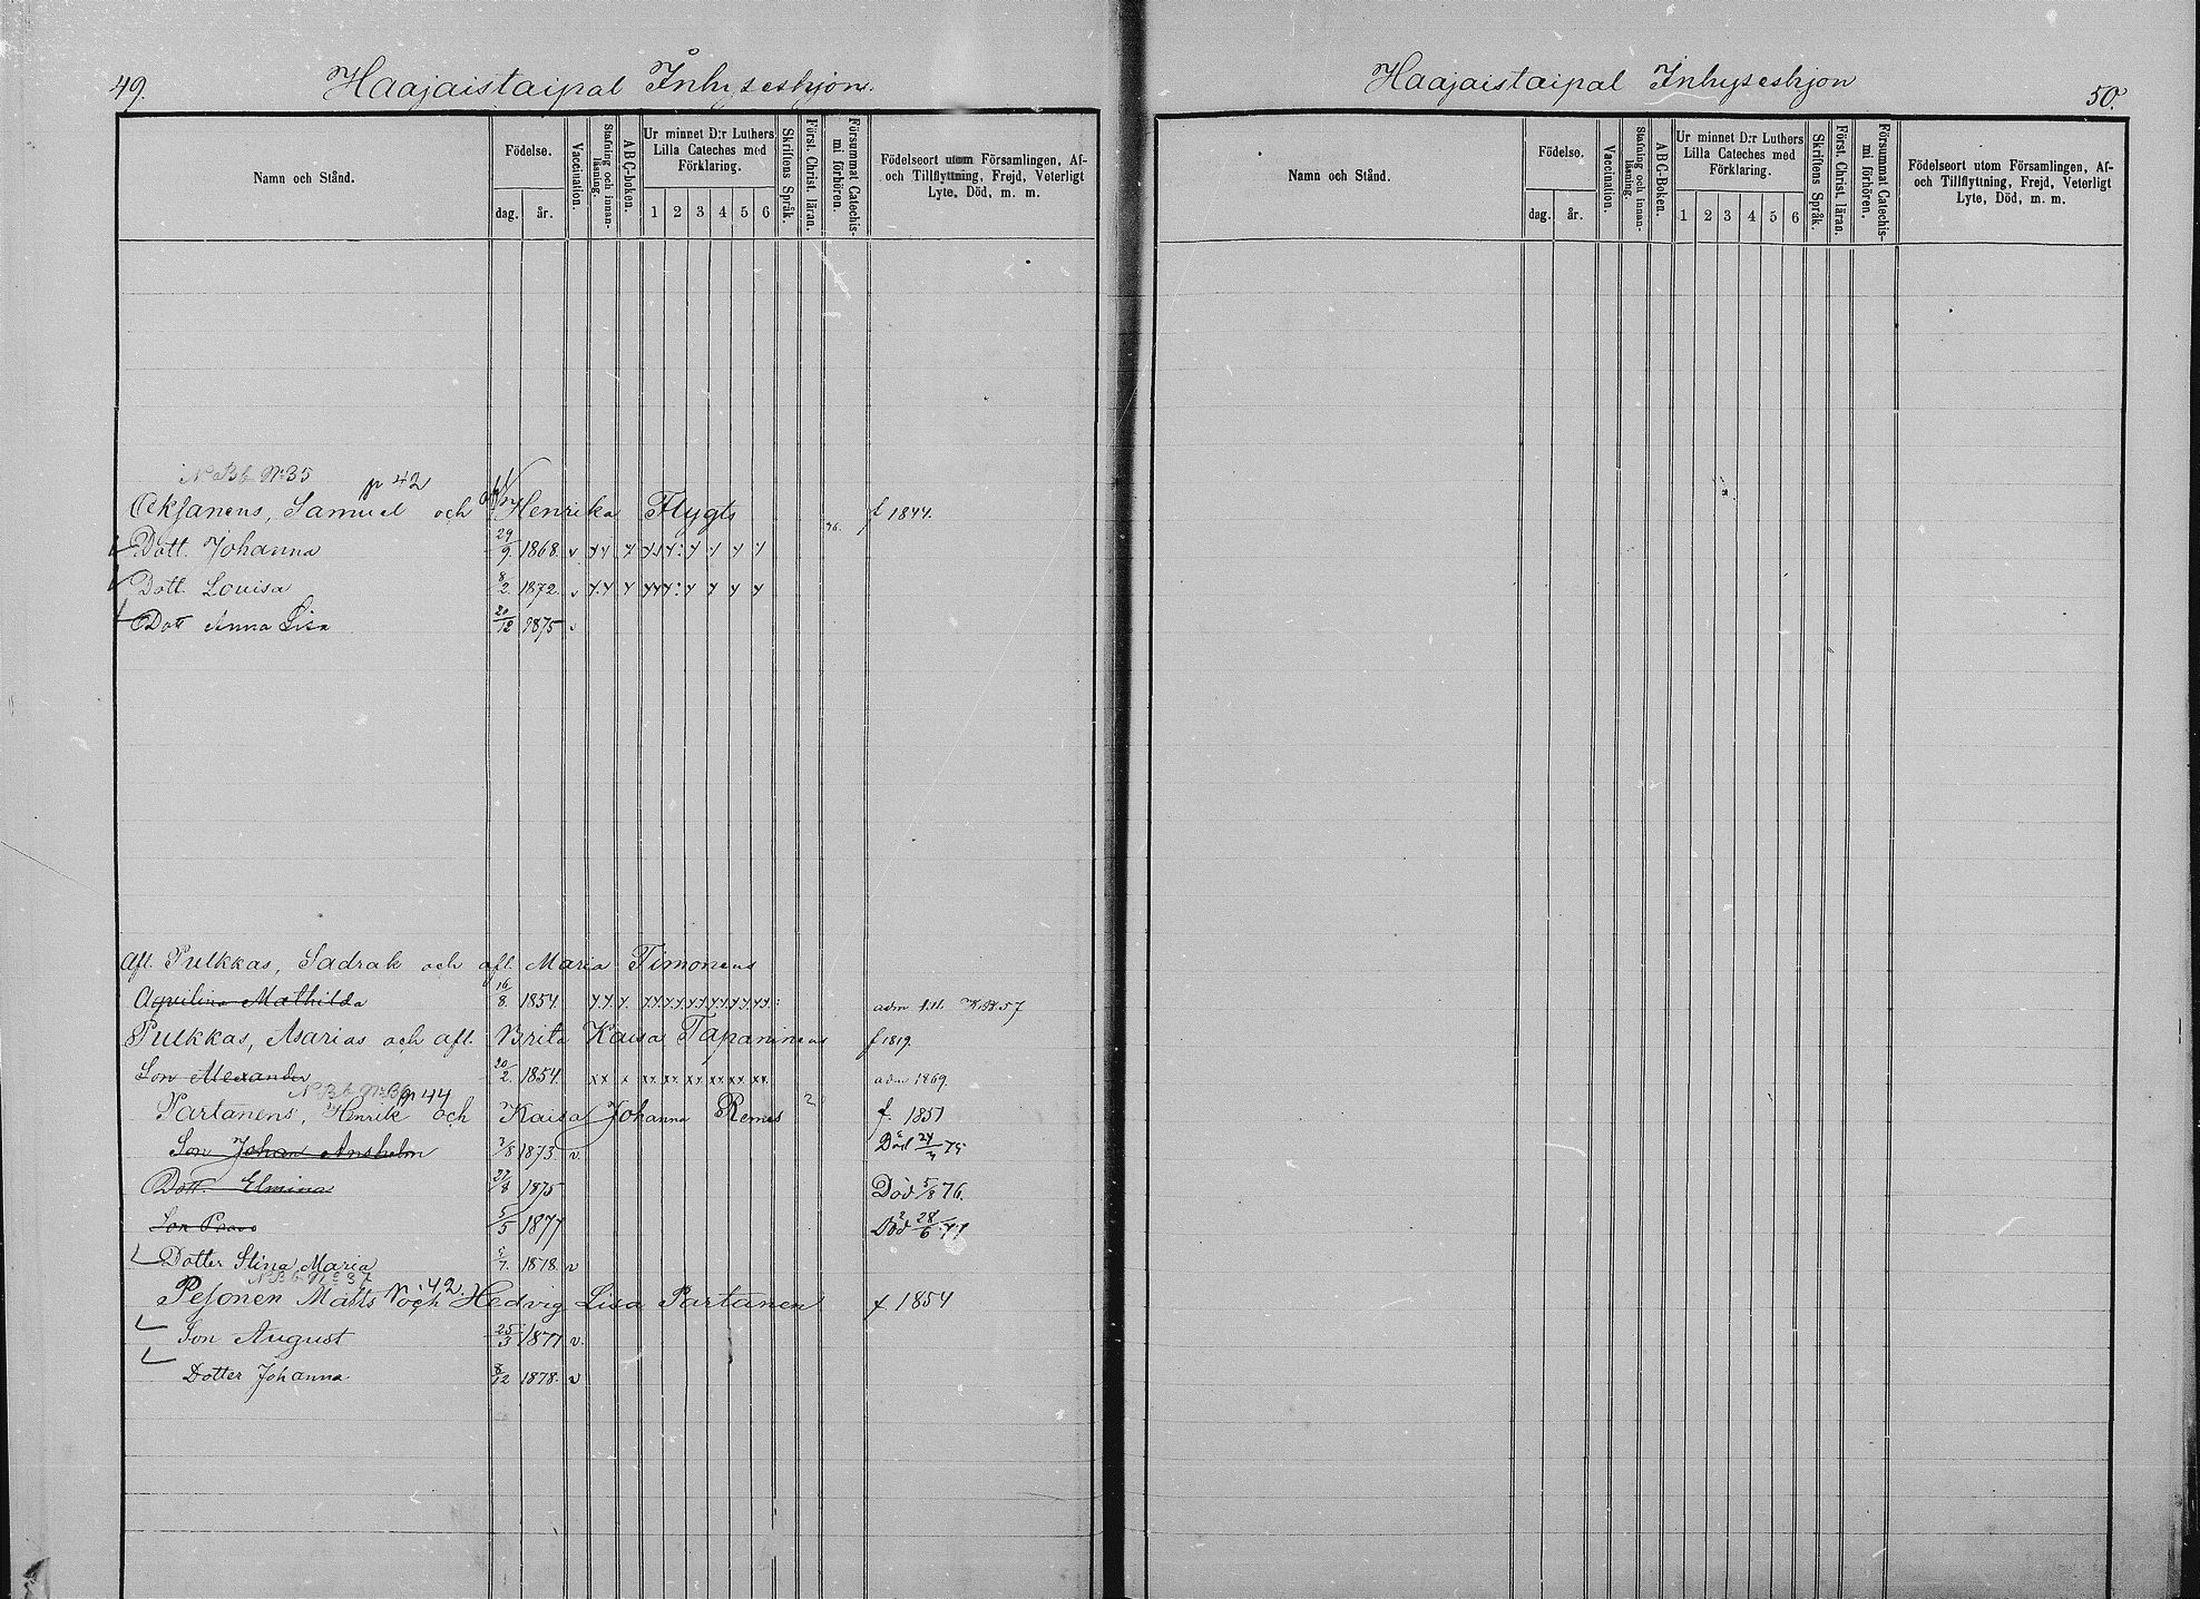 49.
Haajaistaipal Inhyseshjon.
Namn och Stånd.
Födelse.
dag. år.
Vaccination.
Stafning och innanläsning.
ABC-boken.
Ur minnet D:r Luthers Lilla Cateches med Förklaring.
1 2 3 4 5 6
Skriftens Språk.
Först. Christ. läran.
Försummat Catechismi förhören.
Födelseort utom Församlingen, Af- och Tillflyttning, Frejd, Veterligt Lyte, Död, m. m.
N Bb No 35 p 42
Oksanens, Samuel och Henrika Flygts f 1844.
Dott. Johanna 29/9. 1868. v
Dott. Louisa 8/2. 1872. v
Dott Anna Lisa 20/12 1875 v
Afl. Pulkkas, Sadrak och afl. Maria Timonens
Aqvilina Mathilda 16/8. 1854. adm
Pulkkas, Asarias och afl. Brita Kaisa Tapaninens f 1819
Son Alexander 20/2. 1854. adm 1869.
N Bb No 36 p 44
Partanens, Henrik och Kaisa Johanna Remes f. 1851
Son Johan Anshelm 1873. v. Död
Dott. Elmina 1875 Död 5/8 76.
Son Paavo 5/5 1877 Död 28/6 77
Dotter Stina Maria 1878. v
N Bb No 37
Pesonen Matts och Hedvig Lisa Partanen f 1854
Son August 25/3 1877 v.
Dotter Johanna 8/12 1878. v
Haajaistaipal Inhyseshjon
50.
Namn och Stånd.
Födelse.
dag. år.
Vaccination.
Stafning och innanläsning.
ABC-Boken.
Ur minnet D:r Luthers Lilla Cateches med Förklaring.
1 2 3 4 5 6
Skriftens Språk.
Först. Christ. läran.
Försummat Catechismi förhören.
Födelseort utom Församlingen, Af- och Tillflyttning, Frejd, Veterligt Lyte, Död, m. m.